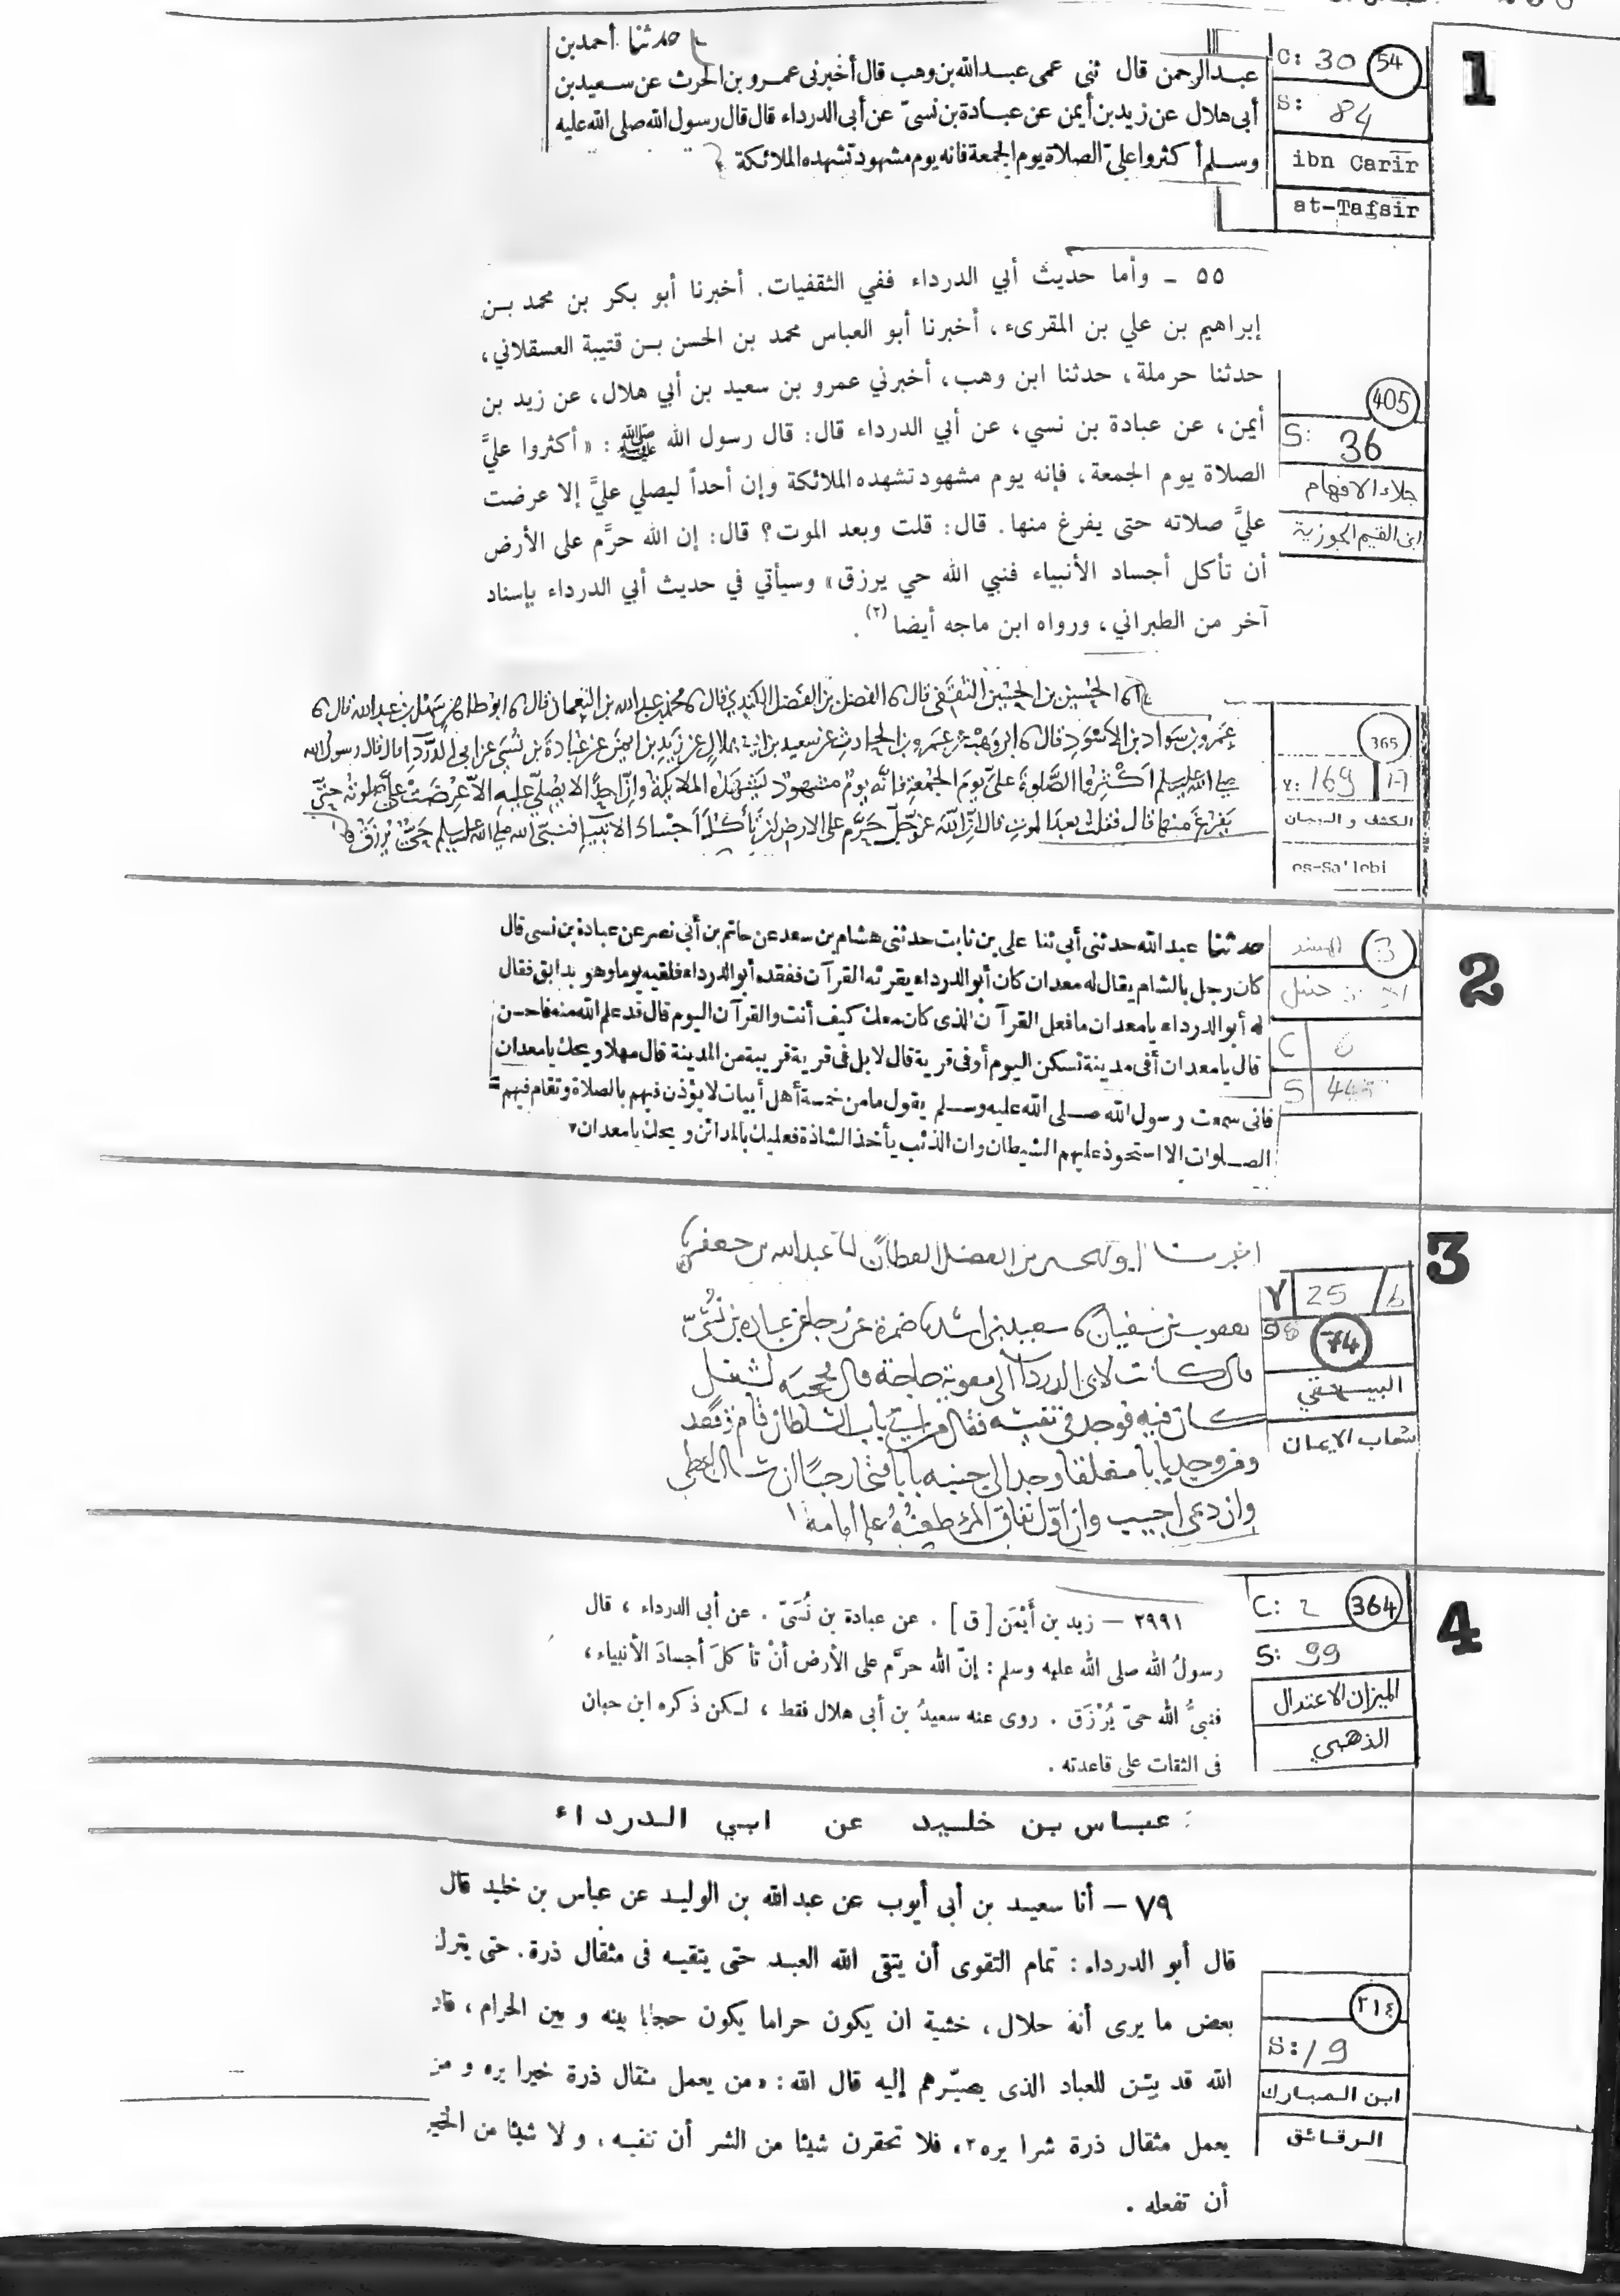 1
حدثنا أحمد بن
عبد الرحمن قال ثنى عمى عبد الله بن وهب قال أخبرنى عمرو بن الحرث عن سعيد بن
أبى هلال عن زيد بن أيمن عن عبادة بن نسىّ عن أبى الدرداء قال قال رسول الله صلى الله عليه
وسلم أكثروا علىّ الصلاة يوم الجمعة فانه يوم مشهود تشهده الملائكة
C: 30 54
S: 84
ibn Carir
at-Tafsir
٥٥ ـ وأما حديث أبي الدرداء ففي الثقفيات. أخبرنا أبو بكر بن محمد بـن
إبراهيم بن علي بن المقرىء، أخبرنا أبو العباس محمد بن الحسن بـن قتيبة العسقلاني،
حدثنا حرملة، حدثنا ابن وهب، أخبرني عمرو بن سعيد بن أبي هلال، عن زيد بن
أيمن، عن عبادة بن نسي، عن أبي الدرداء قال: قال رسول الله ﷺ: «أكثروا عليَّ
الصلاة يوم الجمعة، فإنه يوم مشهود تشهده الملائكة وإن أحداً ليصلي عليَّ إلا عرضت
عليَّ صلاته حتى يفرغ منها. قال: قلت وبعد الموت؟ قال: إن الله حرَّم على الأرض
أن تأكل أجساد الأنبياء فنبي الله حي يرزق» وسيأتي في حديث أبي الدرداء بإسناد
آخر من الطبراني، ورواه ابن ماجه أيضا (٢).
405
S: 36
جلاء الافهام
ابن القيم الجوزية
الحسين بن الحسين الثقفي قال الفضل بن الفضل الكندي قال محمد بن عبد الله بن النعمان قال ابو طاهر سهل بن عبد الله قال
عمرو بن سواد بن الاسود قال ابن وهب عن عمرو بن الحارث عن سعيد بن ابي هلال عن زيد بن ايمن عن عبادة بن نسي عن ابي الدرداء قال قال رسول الله
صلى الله عليه وسلم اكثروا الصلوة علي يوم الجمعة فانه يوم مشهود تشهده الملائكة وان احدا لا يصلي عليه الا عرضت علي صلوته حتى
يفرغ منها قال فقلت بعد الموت قال ان الله عز وجل حرم على الارض ان تأكل اجساد الانبياء فنبي الله صلى الله عليه وسلم حي يرزق
365
V: 169
الكشف و البيان
es-Sa'lebi
2
حدثنا عبد الله حدثنى أبى ثنا على بن ثابت حدثنى هشام بن سعد عن حاتم بن أبى نصر عن عبادة بن نسى قال
كان رجل بالشام يقال له معدان كان أبو الدرداء يقرئه القرآن ففقده أبو الدرداء فلقيه يوما وهو بدابق فقال
له أبو الدرداء يا معدان ما فعل القرآن الذى كان معك كيف أنت والقرآن اليوم قال قد علم الله منه فاحسن
قال يا معدان أفى مدينة تسكن اليوم أو فى قرية قال لا بل فى قرية قريبة من المدينة قال مهلا ويحك يا معدان
فانى سمعت رسول الله صلى الله عليه وسلم يقول ما من خمسة أهل أبيات لا يؤذن فيهم بالصلاة وتقام فيهم =
الصلوات الا استحوذ عليهم الشيطان وان الذئب يأخذ الشاذة فعليك بالمدائن ويحك يا معدان
3 المسند
حنبل
C 6
S 445
3
اخبرنا ابو الحسين بن الفضل القطان ثنا عبد الله بن جعفر
يعقوب بن سفيان سعيد بن اسد ضمرة عن رجا عن عباده بن نسي
قال كانت لابي الدرداء الى معوية حاجة قال فحجبه لشغل
كان فيه فوجد في نفسه فقال من يأت باب السلطان قام وقعد
ومن وجد بابا مغلقا وجد الى جنبه بابا فتحا رحبا ان سال اعطي
وان دعي اجيب وان اول نفاق المرء طعنه على امامه
V 25 / b
58 74
البيهقي
شعاب الايمان
4
٢٩٩١ — زيد بن أَيْمَن [ق]. عن عبادة بن نُسَىّ. عن أبى الدرداء، قال
رسولُ الله صلى الله عليه وسلم: إنّ الله حرَّم على الأرض أنْ تأكلَ أجسادَ الأنبياء،
فنبىُّ الله حىّ يُرْزَق. روى عنه سعيدُ بن أبى هلال فقط، لـكن ذكره ابن حبان
فى الثقات على قاعدته.
C: 2 364
S: 99
الميزان الاعتدال
الذهبي
عباس بن خليد عن ابي الدرداء
٧٩ — أنا سعيد بن أبى أيوب عن عبد الله بن الوليد عن عباس بن خليد قال
قال أبو الدرداء: تمام التقوى أن يتقى الله العبد حتى يتقيه فى مثقال ذرة. حتى يترك
بعض ما يرى أنه حلال، خشية ان يكون حراما يكون حجابا بينه و بين الحرام، فان
الله قد بيّن للعباد الذى يصيّرهم إليه قال الله: «من يعمل مثقال ذرة خيرا يره و من
يعمل مثقال ذرة شرا يره»٢، فلا تحقرن شيئا من الشر أن تتقيه، و لا شيئا من الخير
أن تفعله.
٢١٤
S: 19
ابن المبارك
الرقائق